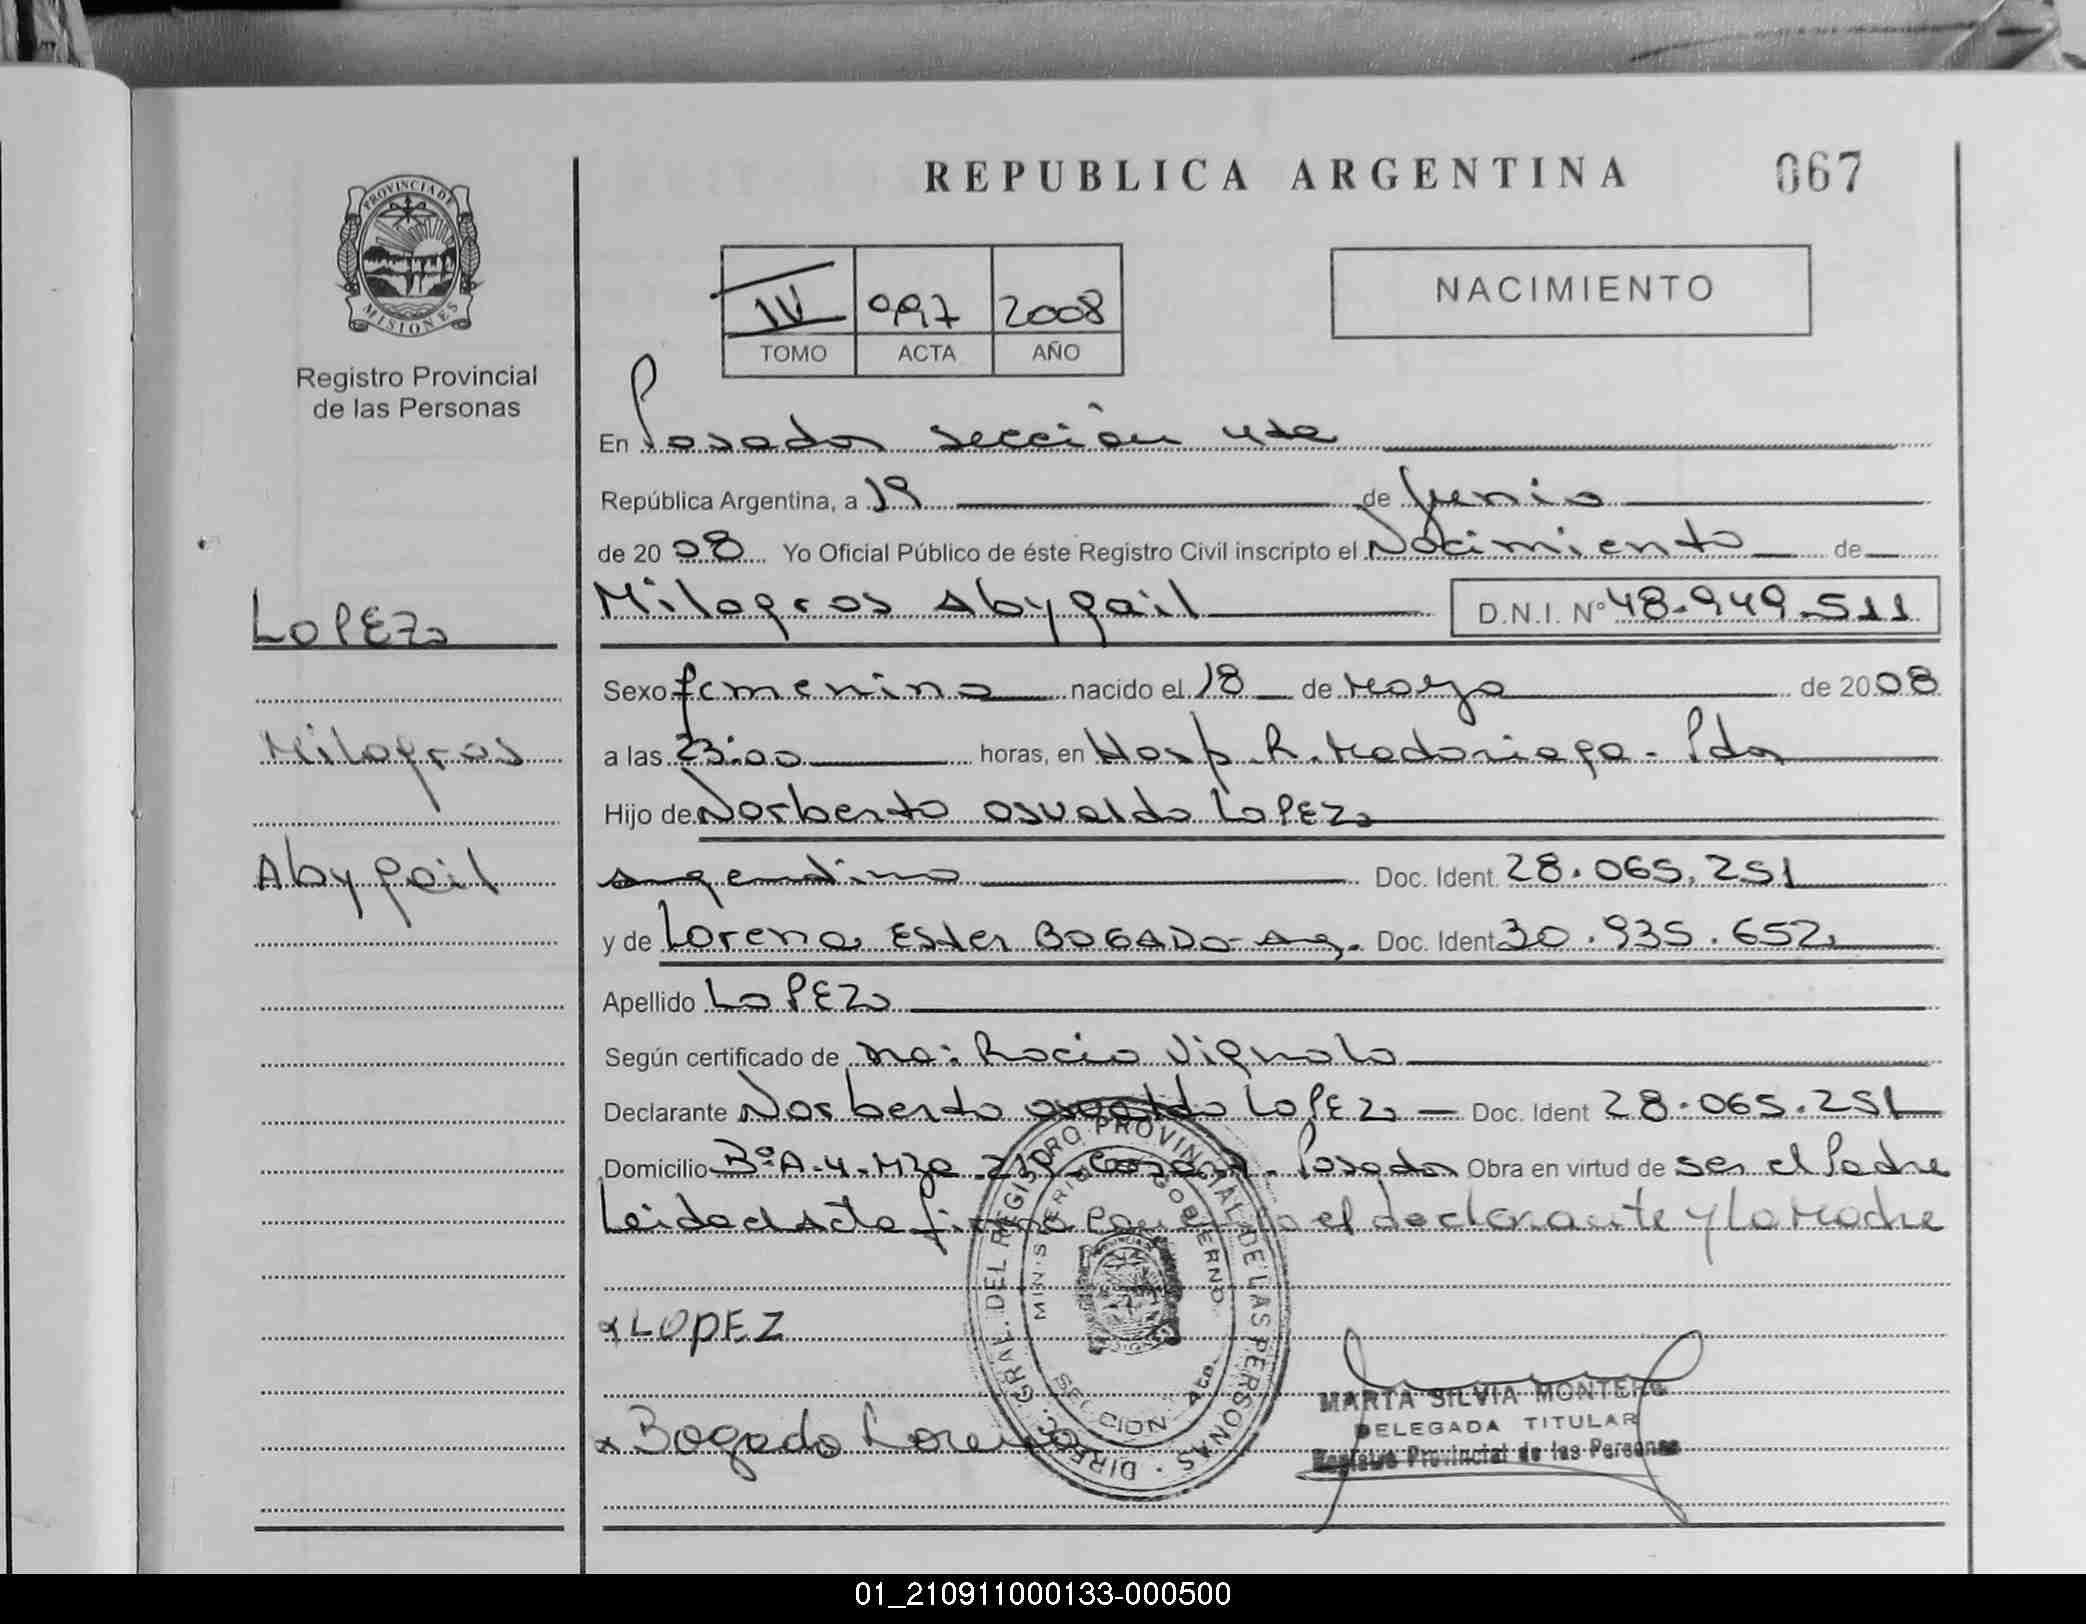 REPUBLICA ARGENTINA
067
PROVINCIA DE MISIONES
Registro Provincial
de las Personas
IV 997 2008
TOMO ACTA AÑO
NACIMIENTO
En Posadas sección 4ta
República Argentina, a 19 de Junio
de 20 08 Yo Oficial Público de éste Registro Civil inscripto el Nacimiento de
Milagros Abygail D.N.I. Nº 48.949.511
LOPEZ
Milagros
Abygail
Sexo femenino nacido el 18 de Mayo de 20 08
a las 23:00 horas, en Hosp. R. Madariaga - Pdas
Hijo de Norberto Osvaldo LOPEZ
argentino Doc. Ident. 28.065.251
y de Lorena Ester BOGADO - Arg. Doc. Ident 30.935.652
Apellido LOPEZ
Según certificado de Dra: Rocío Vignolo
Declarante Norberto Osvaldo LOPEZ Doc. Ident 28.065.251
Domicilio Bº A-4 - Mza Posadas Obra en virtud de ser el Padre
Leida el Acta el declarante y la Madre
x LOPEZ
x Bogado Lorena
DIREC. GRAL. DEL REGISTRO PROVINCIAL DE LAS PERSONAS
MINISTERIO GOBIERNO
SECCION 4ta.
MARTA SILVIA MONTERO
DELEGADA TITULAR
Registro Provincial de las Personas
01_210911000133-000500